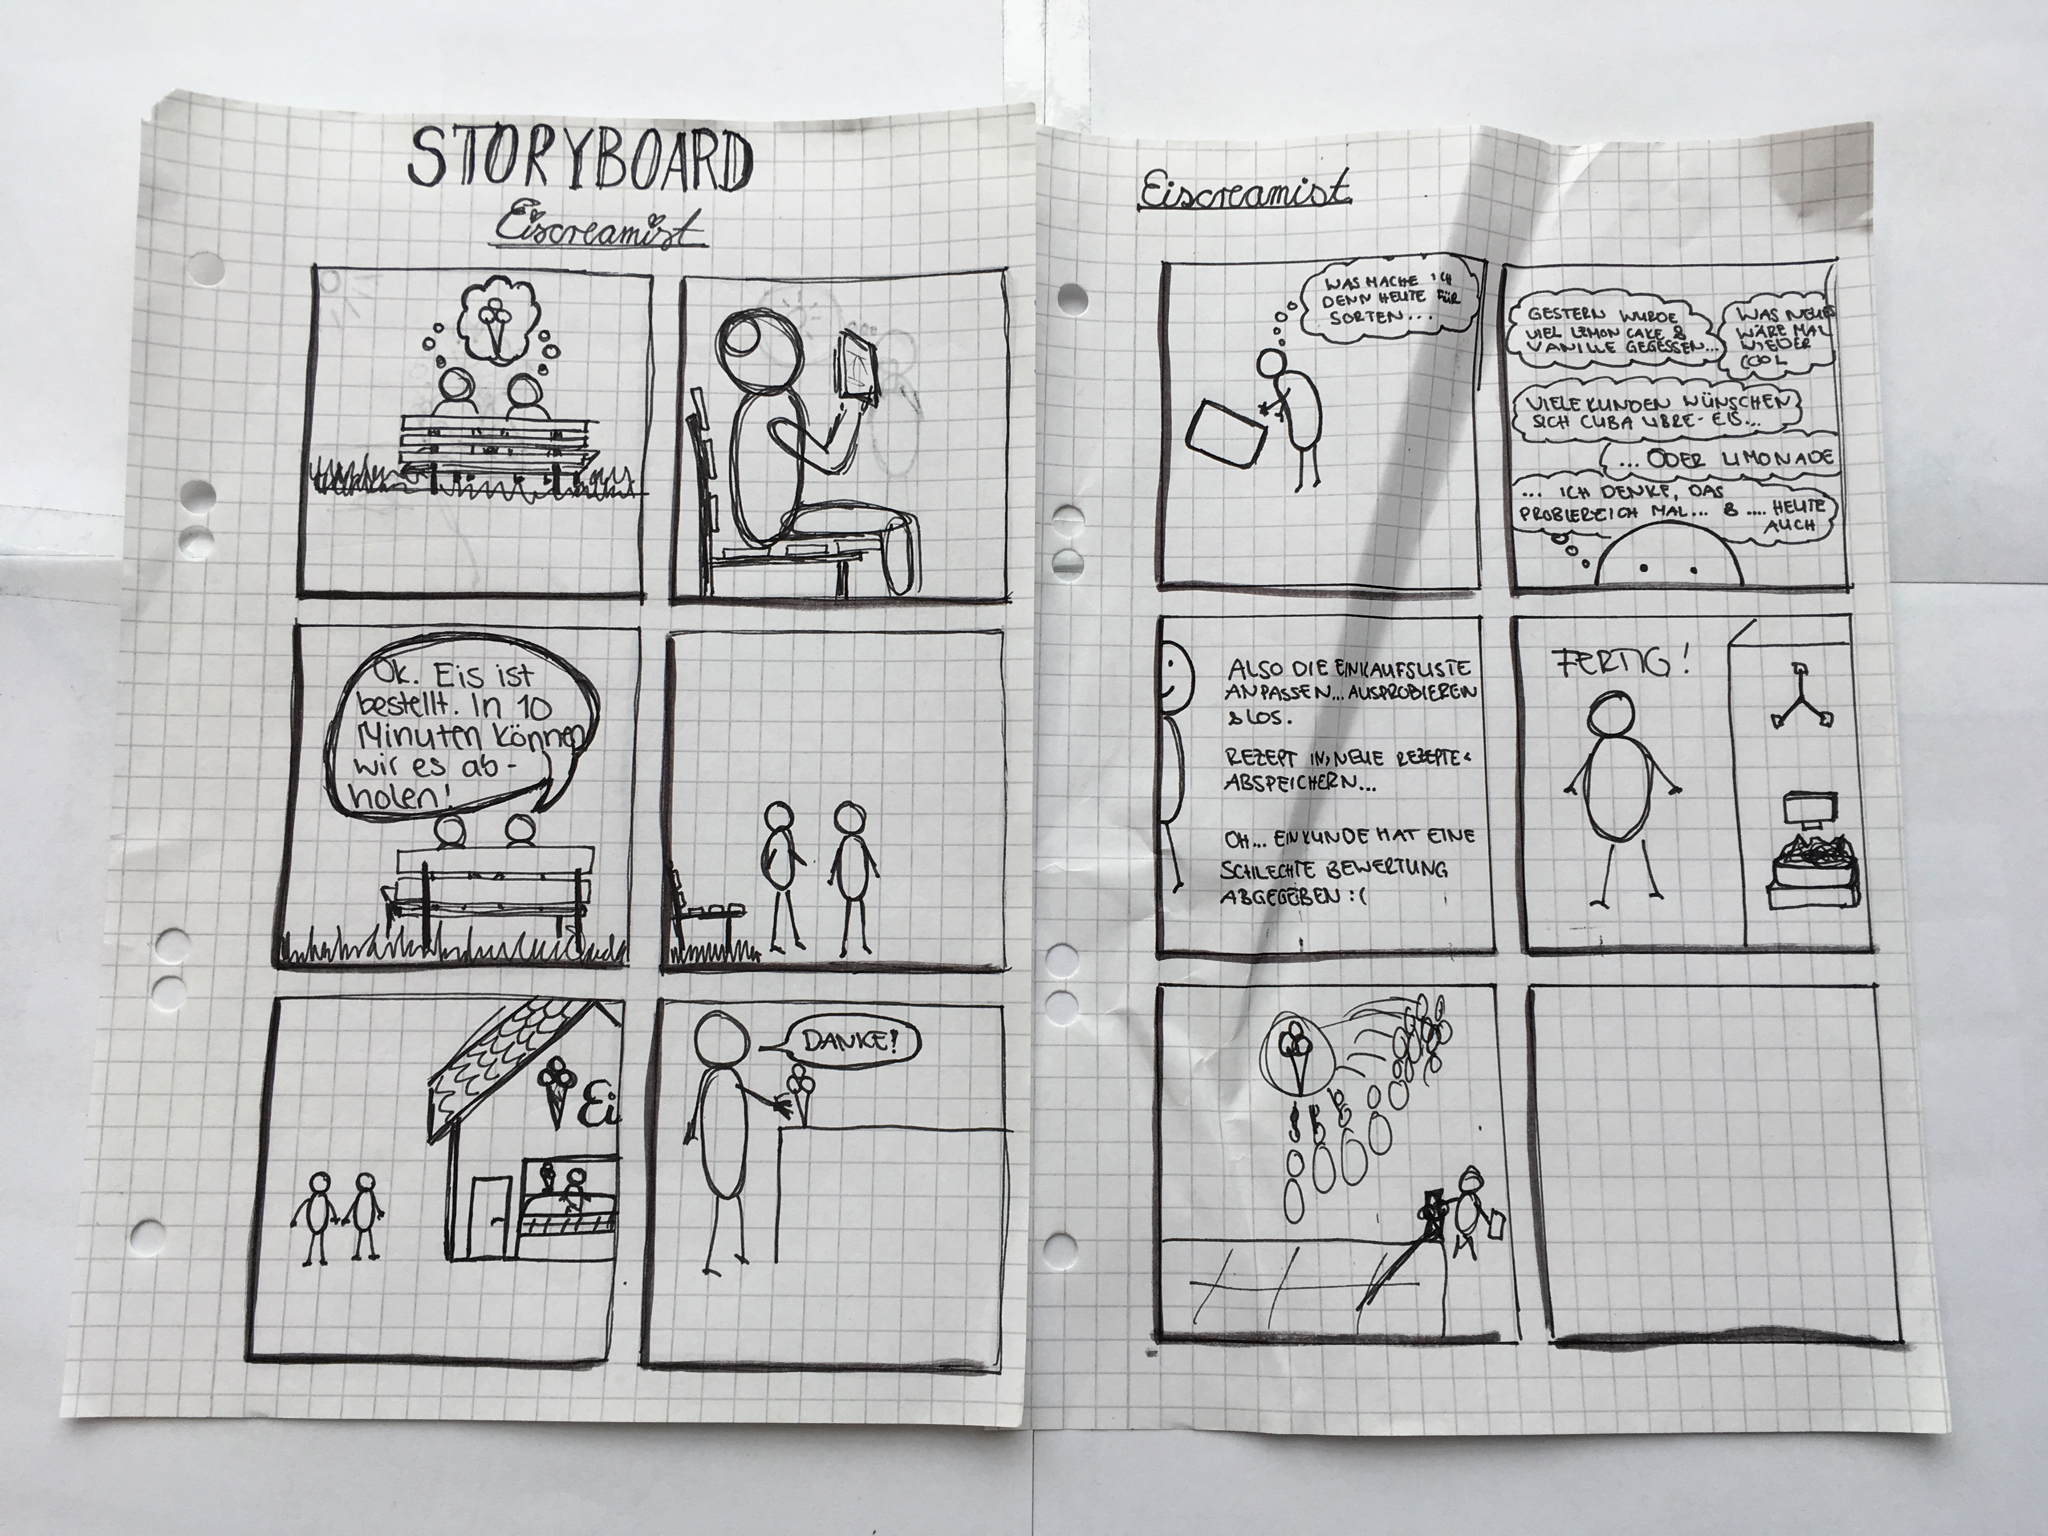 STORYBOARD
Eiscreamist
Ok. Eis ist
bestellt. In 10
Minuten können
wir es ab-
holen!
Ei
DANKE!
Eiscreamist
WAS MACHE ICH
DENN HEUTE FÜR
SORTEN...
GESTERN WURDE
VIEL LEMON CAKE &
VANILLE GEGESSEN...
WAS NEUES
WÄRE MAL
WIEDER
COOL
VIELE KUNDEN WÜNSCHEN
SICH CUBA LIBRE-EIS...
... ODER LIMONADE
... ICH DENKE, DAS
PROBIERE ICH MAL... & .... HEUTE
AUCH
ALSO DIE EINKAUFSLISTE
ANPASSEN... AUSPROBIEREN
& LOS.
REZEPT IN "NEUE REZEPTE"
ABSPEICHERN...
OH... EIN KUNDE HAT EINE
SCHLECHTE BEWERTUNG
ABGEGEBEN :(
FERTIG!